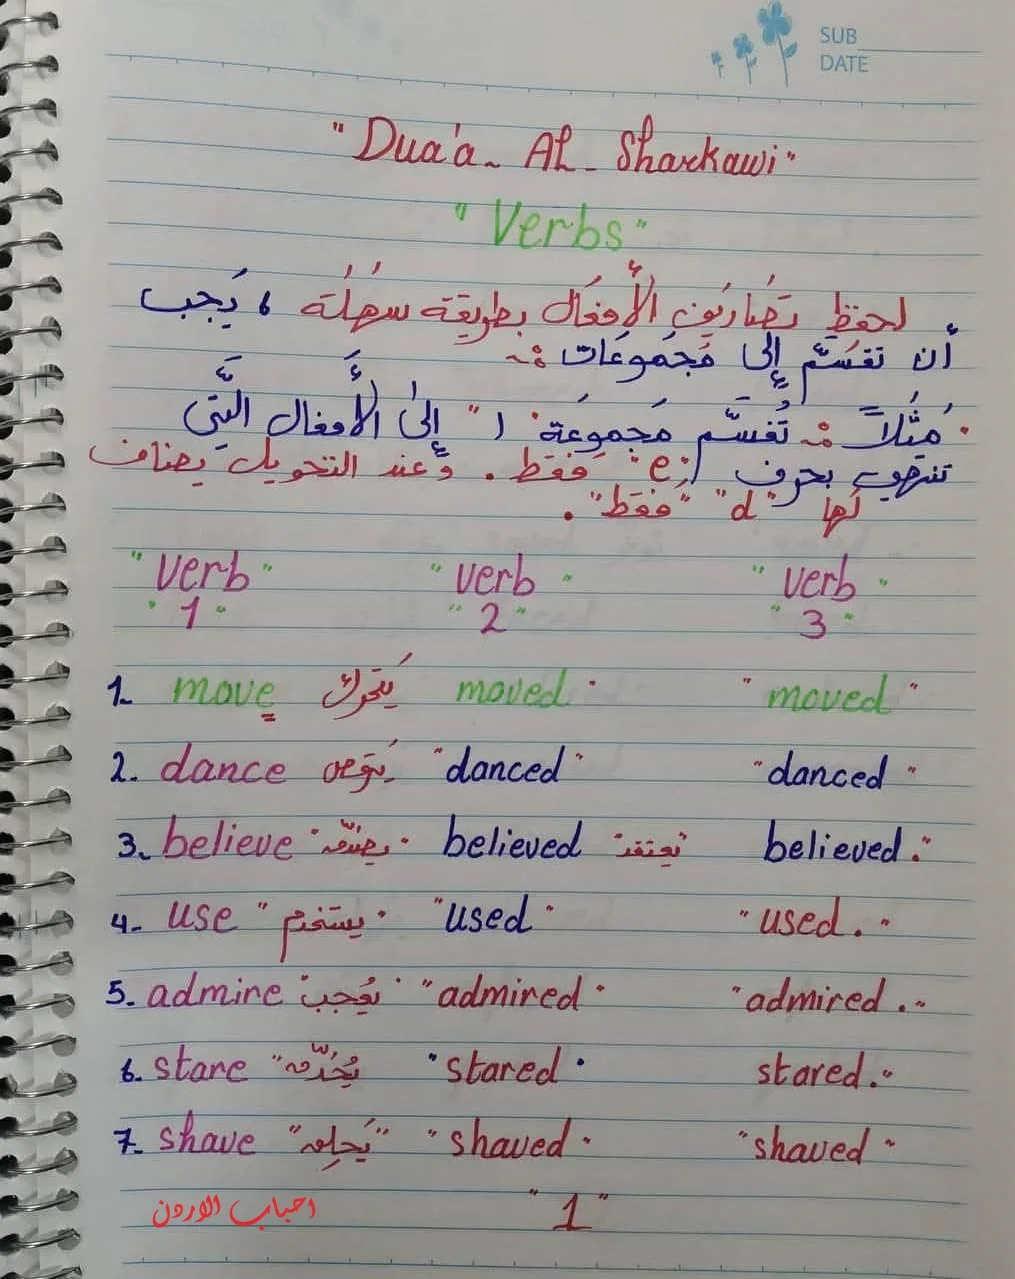 SUB
DATE
"Dua'a - Al - Sharkawi"
"Verbs"
لحفظ تَصَارَيف الأَفعَال بطريقة سَهُلُة ، يَجب
أن تقسَّم إلى مَجَموعَات :-
مَثَلاً :- تُقسَّم مَجموعَة "1" إلىٰ الأَفعَال الَّتي
تنتهي بحرف "e" فقط. وَعند التحويل يضاف
لَها "d" "فقط".
"Verb" "verb" "verb"
"1" "2" "3"
1- move يَتحرك moved "moved"
2. dance يَرقص "danced" "danced"
3- believe "يصدّق" believed "يعتقد" believed."
4- use "يستخدم" "used" "used."
5. admire "يُعجب" "admired" "admired."
6. stare "يُحَدّق" "stared" stared."
7- shave "يَحلِق" "shaved" "shaved"
احباب الاردن "1"